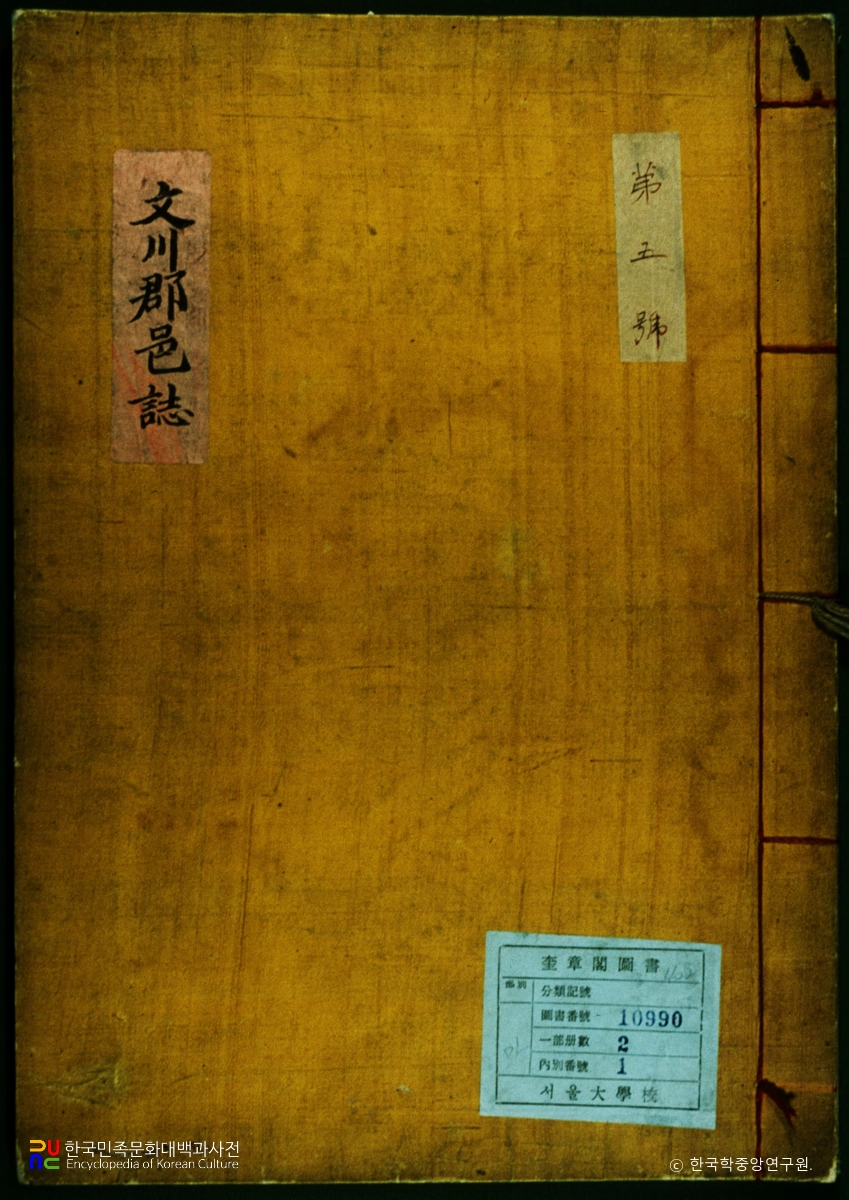 文川郡邑誌
第五號
奎章閣圖書
部別
分類記號
圖書番號 10990
一部册數 2
內別番號 1
서울大學校
한국민족문화대백과사전
Encyclopedia of Korean Culture
© 한국학중앙연구원.